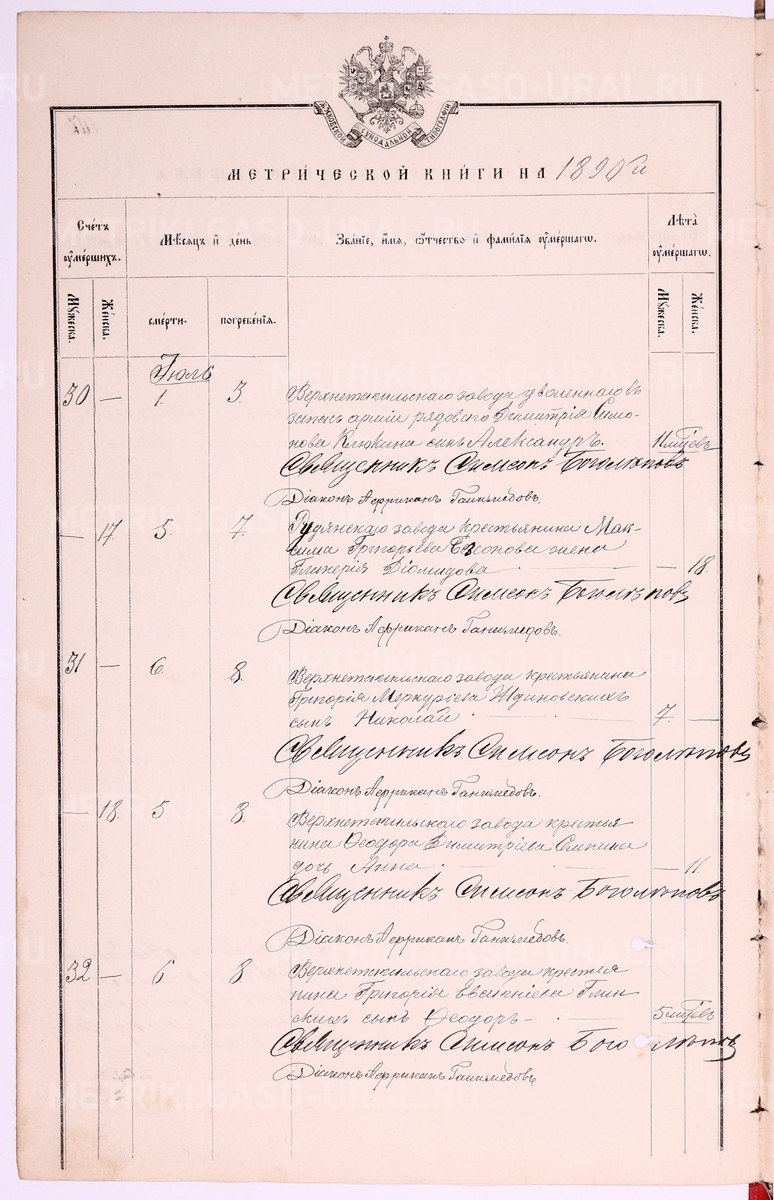 METRIKI.GASO-URAL.RU
МОСКОВСКОЙ СѴНОДАЛЬНОЙ ТИПОГРАФІИ
МЕТРИ́ЧЕСКОЙ КНИ́ГИ НА 1890 й
Сче́тъ ᲂу҆ме́ршихъ.
Мѣ́сяцъ и҆ де́нь
Зва́нїе, и҆́мя, ѻ҆́тчество и҆ фами́лїя ᲂу҆ме́ршагѡ.
Лѣ́та ᲂу҆ме́ршагѡ.
Мꙋ́жеска.
Же́нска.
сме́рти.
погребе́нїя.
Мꙋ́жеска.
Же́нска.
Іюль
30 — 1. 3. Верхнетагильскаго завода уволеннаго въ
запасъ арміи рядоваго Димитрія Симо-
нова Клюкина сынъ Александръ. 11 мѣсцевъ
Священникъ Симеонъ Боголюповъ
Діаконъ Африканъ Ганимедовъ.
— 17 5. 7. Рудянскаго завода крестьянина Мак-
сима Григорьева жена
Гликерія Діомидова — — 18.
Священникъ Симеонъ Боголюповъ
Діаконъ Африканъ Ганимедовъ.
31 — 6. 8. Верхнетагильскаго завода крестьянина
Григорія Меркурьева Ждановскихъ
сынъ Николай — 7. —
Священникъ Симеонъ Боголюповъ
Діаконъ Африканъ Ганимедовъ.
— 18. 5. 8. Верхнетагильскаго завода крестья-
нина Ѳеодора Димитріева
дочь Анна. — — 11.
Священникъ Симеонъ Боголюповъ
Діаконъ Африканъ Ганимедовъ.
32 — 6 8 Верхнетагильскаго завода крестья
нина Григорія Глин-
скихъ сынъ Ѳеодоръ — 5 мѣсцевъ
Священникъ Симеонъ Боголюповъ
Діаконъ Африканъ Ганимедовъ